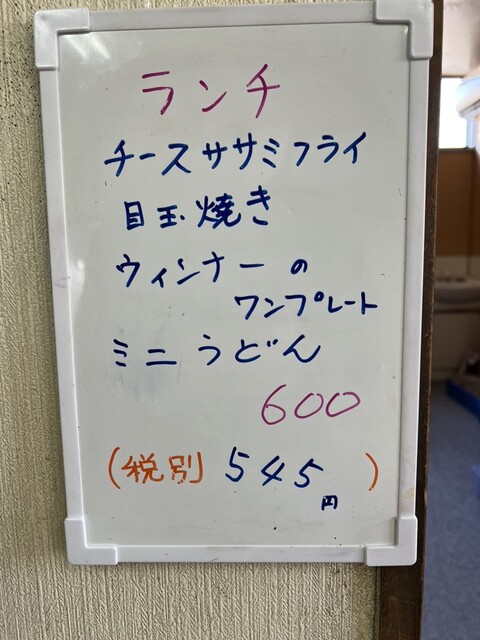 ランチ
チースササミフライ
目玉焼き
ウィンナーの
ワンプレート
ミニうどん
600
(税別 545円)